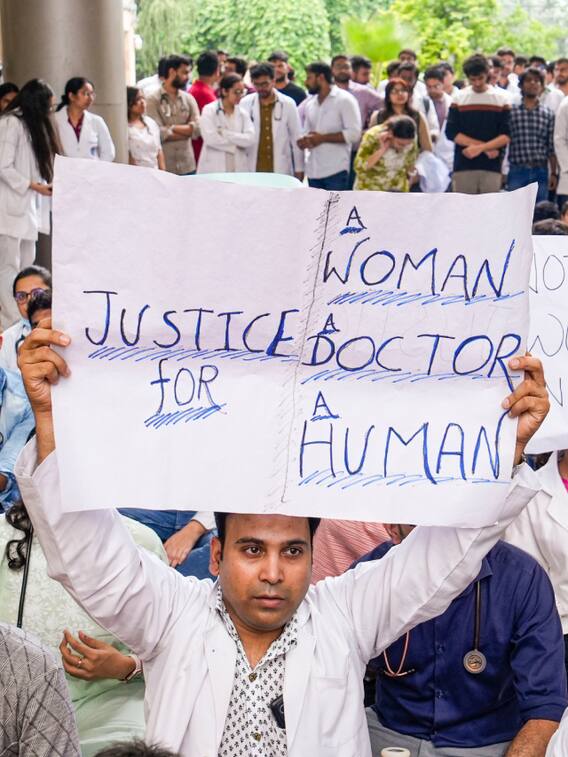 JUSTICE
fOR
A
WOMAN
A
DOCTOR
A
HUMAN